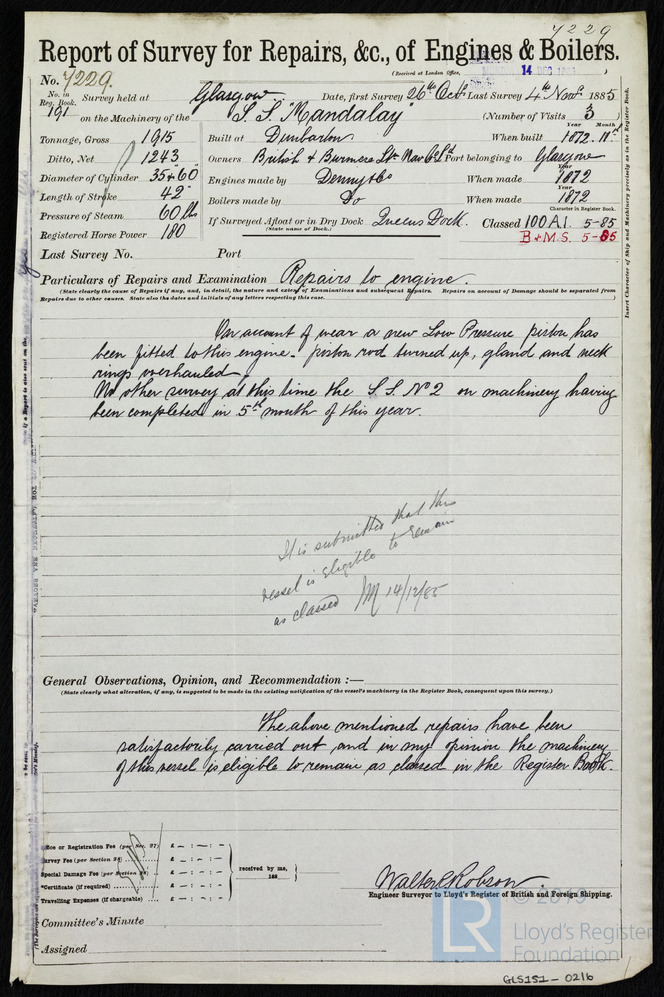 7229
Report of Survey for Repairs, &c., of Engines & Boilers.
(Received at London Office, 14 DEC 1885)
No. 7229.
No. in Reg. Book. 191
Survey held at Glasgow Date, first Survey 26th Octr. Last Survey 4th Novr. 1885
on the Machinery of the S.S. "Mandalay" (Number of Visits 3)
Tonnage, Gross 1915 Built at Dumbarton When built 1872. 11
Year Month
Ditto, Net 1243 Owners British & Burmese St. Nav Co Ld Port belonging to Glasgow
Diameter of Cylinder 35" & 60" Engines made by Denny & Co When made 1872
Year
Length of Stroke 42" Boilers made by Do When made 1872
Year
Pressure of Steam 60 lbs If Surveyed Afloat or in Dry Dock Queens Dock. Classed 100A1. 5-85
(State name of Dock.)
Character in Register Book.
Registered Horse Power 180 B & M.S. 5-85
Last Survey No. Port
Particulars of Repairs and Examination Repairs to engine.
(State clearly the cause of Repairs if any, and, in detail, the nature and extent of Examinations and subsequent Repairs. Repairs on account of Damage should be separated from
Repairs due to other causes. State also the dates and initials of any letters respecting this case.)
On account of wear a new Low Pressure piston has
been fitted to this engine. piston rod turned up, gland and neck
rings overhauled.
No other survey at this time the S.S. No 2 on machinery having
been completed in 5th month of this year.
It is submitted that this
vessel is eligible to remain
as classed 14/12/85
General Observations, Opinion, and Recommendation :—
(State clearly what alteration, if any, is suggested to be made in the existing notification of the vessel's machinery in the Register Book, consequent upon this survey.)
The above mentioned repairs have been
satisfactorily carried out and in my opinion the machinery
of this vessel is eligible to remain as classed in the Register Book.
Office or Registration Fee (per Sec. 27) £ – : – : –
Survey Fee (per Section 28) £ – : – : –
Special Damage Fee (per Section 28) £ – : – : –
received by me,
188
*Certificate (if required) £ – : – : –
Travelling Expenses (if chargeable) £ – : – : –
Walter C Robson
Engineer Surveyor to Lloyd's Register of British and Foreign Shipping.
Committee's Minute
Assigned
Insert Character of Ship and Machinery precisely as in the Register Book.
LR
Lloyd's Register
Foundation
GLS151 - 0216